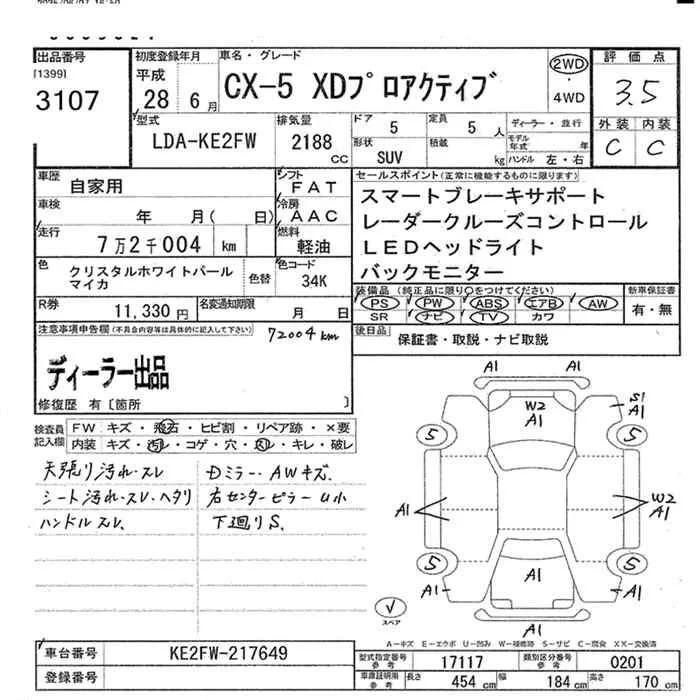 出品番号 初度登録年月 車名・グレード 評価点
[1399] 平成 2WD
3107 28年 6月 CX-5 XDプロアクティブ ・ 3.5
4WD
型式 排気量 ドア 5 定員 5人 ディーラー・並行 外装 内装
LDA-KE2FW 2188cc 形状 SUV 積載 kg モデル年式 年 C C
ハンドル 左・右
車歴 自家用 シフト FAT セールスポイント(正常に機能するものに限ります)
車検 年 月( 日) 冷房 AAC スマートブレーキサポート
レーダークルーズコントロール
走行 7万2千004 km 燃料 軽油 LEDヘッドライト
色 クリスタルホワイトパールマイカ 色替 色コード 34K バックモニター
装備品(純正品に限り○をつけてください) 新車保証書
R券 11,330円 名変通知期限 月 日 PS PW ABS エアB AW 有・無
SR ナビ TV カワ
注意事項申告欄(不具合内容等は具体的に記入して下さい) 72004km 後日品 保証書・取説・ナビ取説
ディーラー出品
修復歴 有〔箇所 〕
検査員記入欄 FW キズ・飛石・ヒビ割・リペア跡・×要
内装 キズ・汚れ・コゲ・穴・スレ・キレ・破レ
天張り汚れ・スレ Dミラー・AWキズ
シート汚れ・スレ・ヘタリ 右センターピラーU小
ハンドルスレ 下廻りS
A1 A1
W2 A1
S1 A1
5 5
A1 W2 A1
5 5
A1 A1 A1
A1
スペア
A-キズ E-エクボ U-凹み W-補修跡 S-サビ C-腐食 XX-交換済
車台番号 KE2FW-217649 型式指定番号 参考 17117 類別区分番号 参考 0201
登録番号 車庫証明用 参考 長さ 454cm 幅 184cm 高さ 170cm